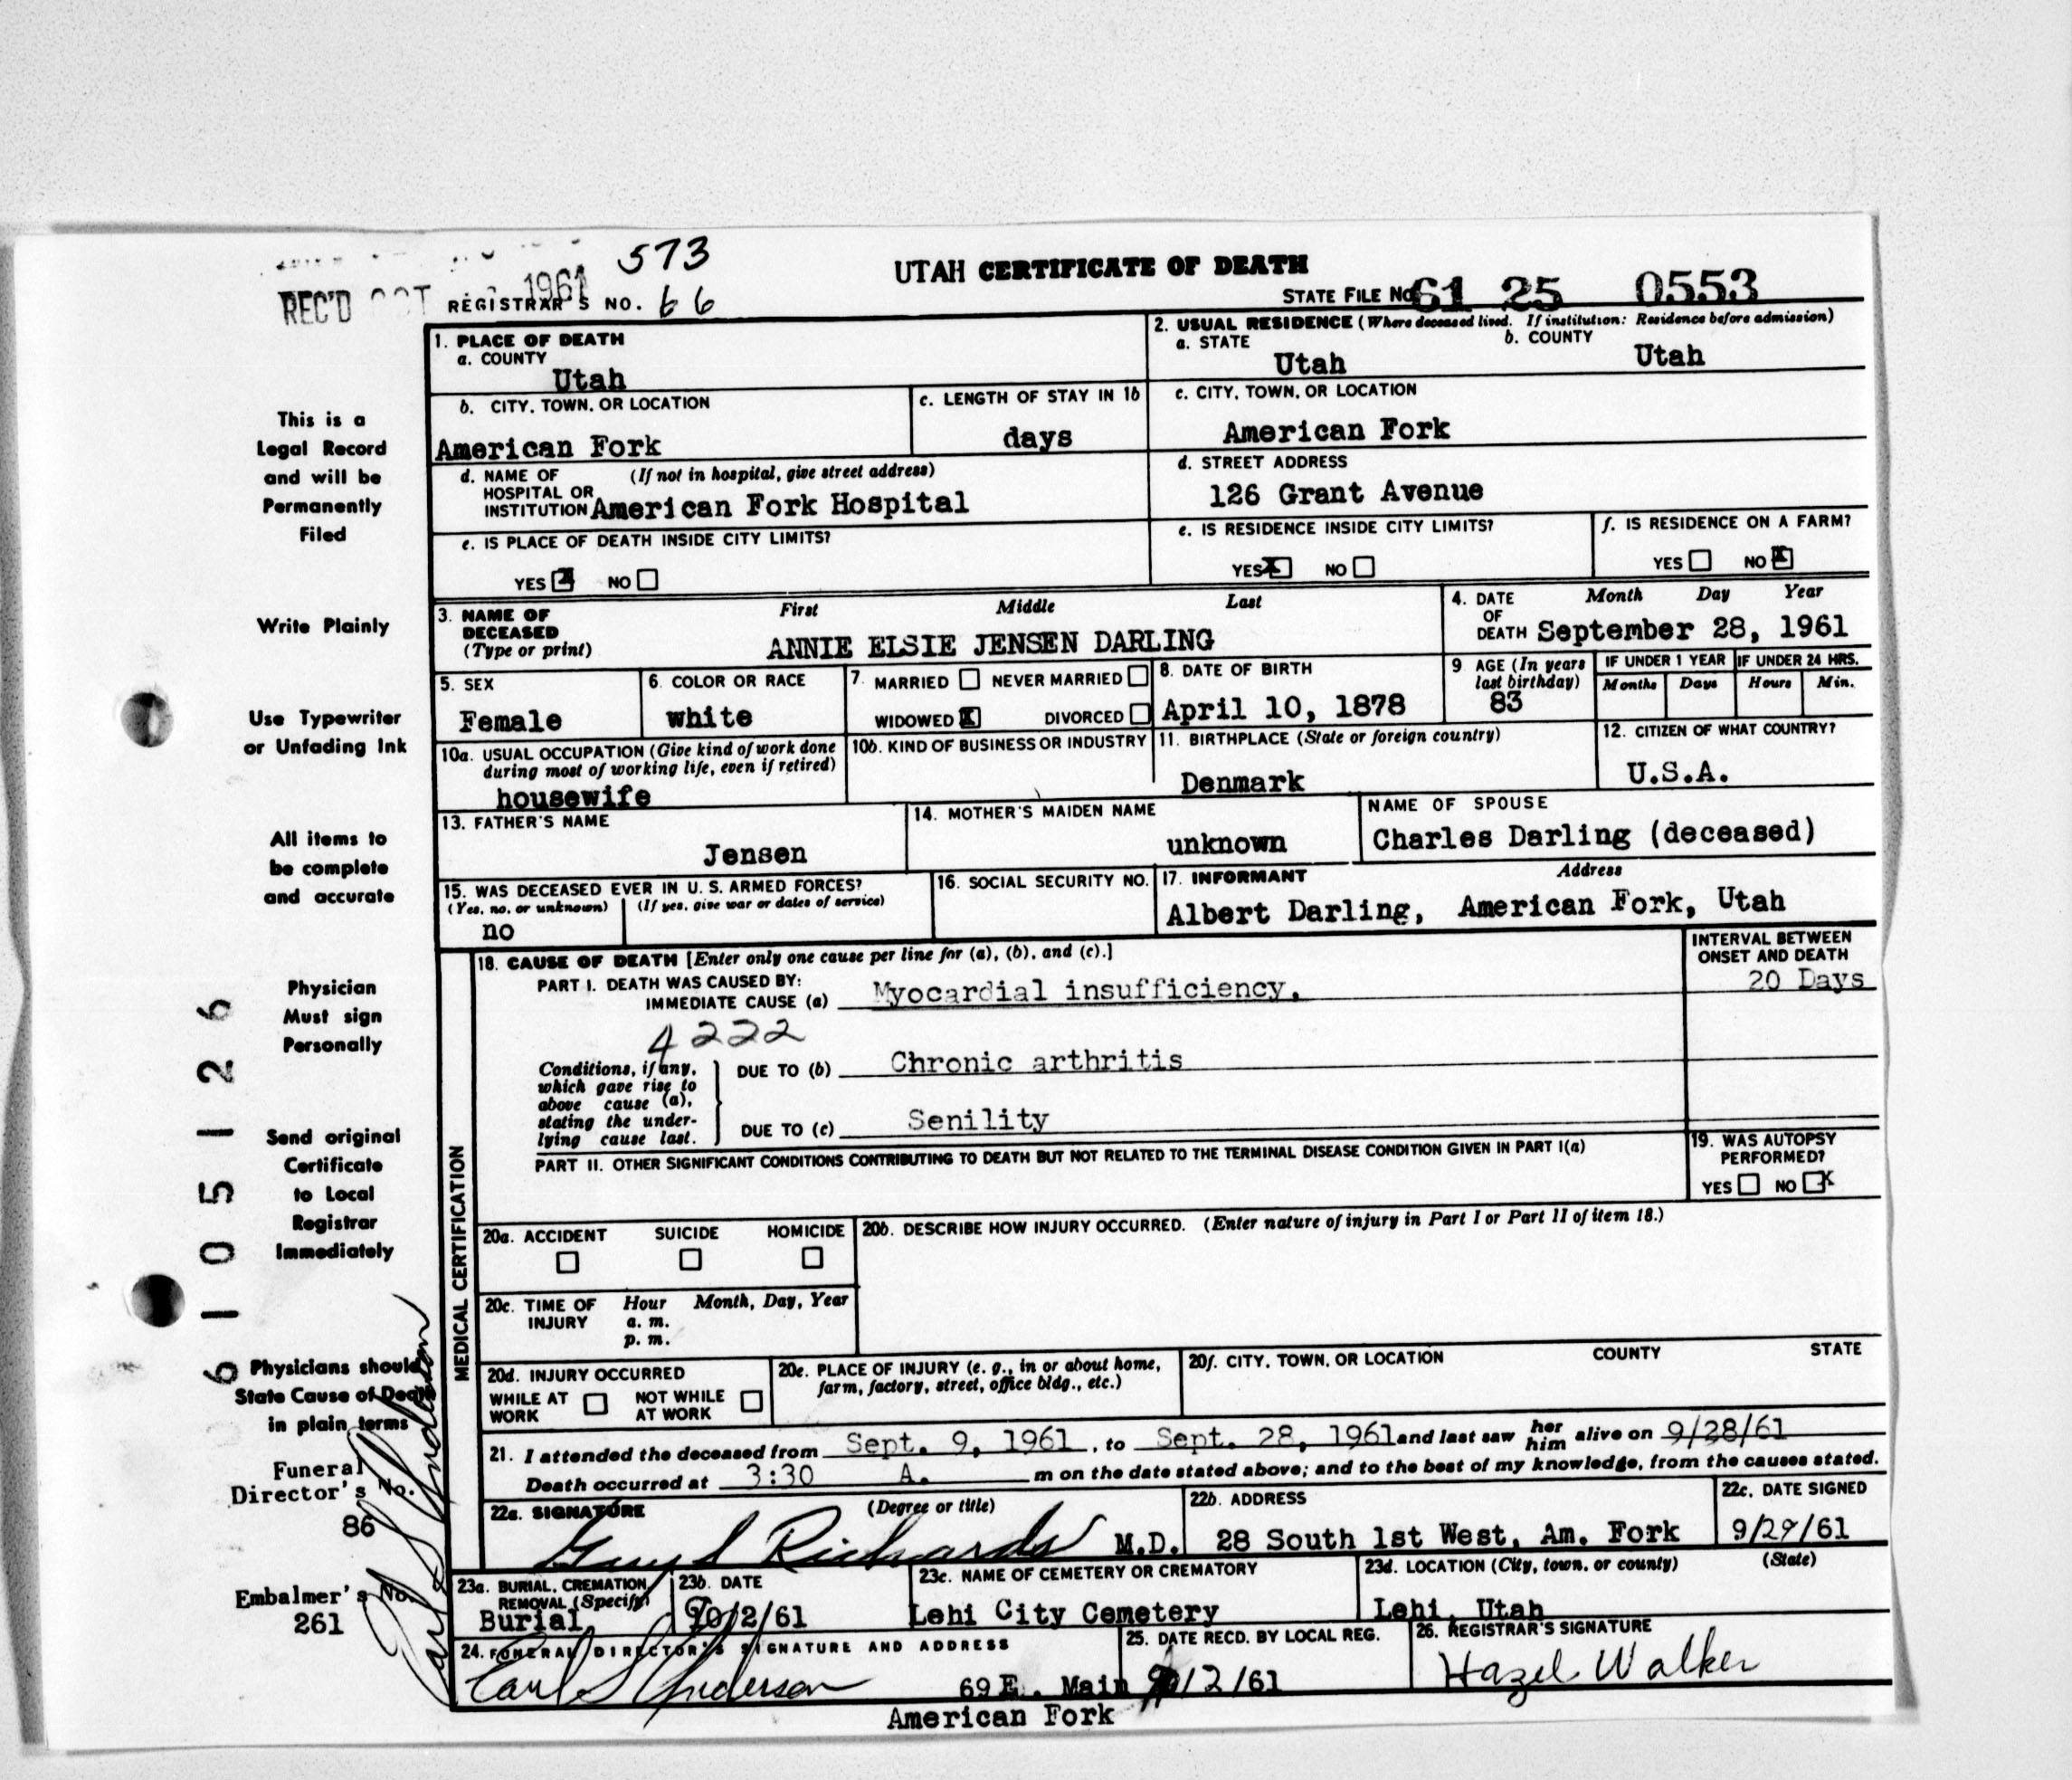 573
UTAH CERTIFICATE OF DEATH
REC'D OCT 1961 REGISTRAR'S NO. 66
STATE FILE No. 61 25 0553
1. PLACE OF DEATH
a. COUNTY
Utah
2. USUAL RESIDENCE (Where deceased lived. If institution: Residence before admission)
a. STATE b. COUNTY
Utah Utah
b. CITY, TOWN, OR LOCATION c. LENGTH OF STAY IN 1b
American Fork days
c. CITY, TOWN, OR LOCATION
American Fork
d. NAME OF HOSPITAL OR INSTITUTION (If not in hospital, give street address)
American Fork Hospital
d. STREET ADDRESS
126 Grant Avenue
e. IS PLACE OF DEATH INSIDE CITY LIMITS?
YES X NO
e. IS RESIDENCE INSIDE CITY LIMITS?
YES X NO
f. IS RESIDENCE ON A FARM?
YES NO X
3. NAME OF DECEASED (Type or print) First Middle Last
ANNIE ELSIE JENSEN DARLING
4. DATE OF DEATH Month Day Year
September 28, 1961
5. SEX
Female
6. COLOR OR RACE
white
7. MARRIED NEVER MARRIED
WIDOWED X DIVORCED
8. DATE OF BIRTH
April 10, 1878
9. AGE (In years last birthday)
83
IF UNDER 1 YEAR IF UNDER 24 HRS.
Months Days Hours Min.
10a. USUAL OCCUPATION (Give kind of work done during most of working life, even if retired)
housewife
10b. KIND OF BUSINESS OR INDUSTRY
11. BIRTHPLACE (State or foreign country)
Denmark
12. CITIZEN OF WHAT COUNTRY?
U.S.A.
13. FATHER'S NAME
Jensen
14. MOTHER'S MAIDEN NAME
unknown
NAME OF SPOUSE
Charles Darling (deceased)
15. WAS DECEASED EVER IN U. S. ARMED FORCES?
(Yes, no, or unknown) (If yes, give war or dates of service)
no
16. SOCIAL SECURITY NO.
17. INFORMANT Address
Albert Darling, American Fork, Utah
MEDICAL CERTIFICATION
18. CAUSE OF DEATH [Enter only one cause per line for (a), (b), and (c).]
INTERVAL BETWEEN ONSET AND DEATH
PART I. DEATH WAS CAUSED BY:
IMMEDIATE CAUSE (a) Myocardial insufficiency. 20 Days
4222
Conditions, if any, which gave rise to above cause (a), stating the underlying cause last.
DUE TO (b) Chronic arthritis
DUE TO (c) Senility
PART II. OTHER SIGNIFICANT CONDITIONS CONTRIBUTING TO DEATH BUT NOT RELATED TO THE TERMINAL DISEASE CONDITION GIVEN IN PART I(a)
19. WAS AUTOPSY PERFORMED?
YES NO X
20a. ACCIDENT SUICIDE HOMICIDE
20b. DESCRIBE HOW INJURY OCCURRED. (Enter nature of injury in Part I or Part II of item 18.)
20c. TIME OF INJURY Hour Month, Day, Year
a. m.
p. m.
20d. INJURY OCCURRED
WHILE AT WORK NOT WHILE AT WORK
20e. PLACE OF INJURY (e. g., in or about home, farm, factory, street, office bldg., etc.)
20f. CITY, TOWN, OR LOCATION COUNTY STATE
21. I attended the deceased from Sept. 9, 1961, to Sept. 28, 1961 and last saw her him alive on 9/28/61
Death occurred at 3:30 A. m on the date stated above; and to the best of my knowledge, from the causes stated.
22a. SIGNATURE (Degree or title)
Guy S Richards M.D.
22b. ADDRESS
28 South 1st West, Am. Fork
22c. DATE SIGNED
9/29/61
23a. BURIAL, CREMATION, REMOVAL (Specify)
Burial
23b. DATE
10/2/61
23c. NAME OF CEMETERY OR CREMATORY
Lehi City Cemetery
23d. LOCATION (City, town, or county) (State)
Lehi, Utah
24. FUNERAL DIRECTOR'S SIGNATURE AND ADDRESS
Earl S Anderson 69 E. Main
American Fork
25. DATE RECD. BY LOCAL REG.
10/2/61
26. REGISTRAR'S SIGNATURE
Hazel Walker
This is a
Legal Record
and will be
Permanently
Filed
Write Plainly
Use Typewriter
or Unfading Ink
All items to
be complete
and accurate
Physician
Must sign
Personally
Send original
Certificate
to Local
Registrar
Immediately
Physicians should
State Cause of Death
in plain terms
Funeral
Director's No.
86
Embalmer's No.
261
Earl S Anderson
6 1 0 5 1 2 6